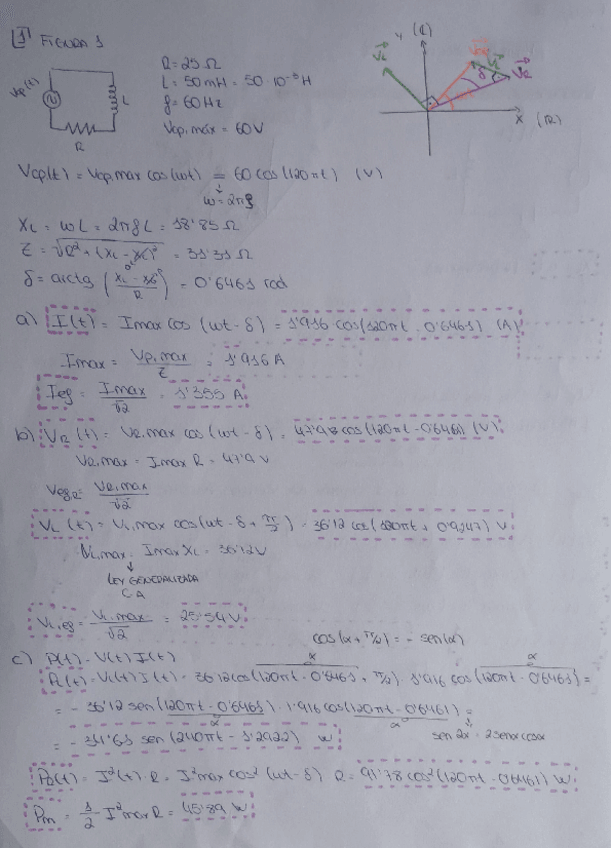 1 FIGURA 1
Vap(t)
L
R
R = 25 Ω
L = 50 mH = 50·10⁻³ H
f = 60 Hz
Vap,máx = 60 V
y (I)
x (R)
VL
VR
VL
δ
Vap(t) = Vap,max cos(ωt) = 60 cos(120πt) (V)
ω = 2πf
XL = ωL = 2πfL = 18'85 Ω
Z = √R² + (XL - XC)² = 31'31 Ω
0
δ = arctg (XL - XC / R) = 0'6461 rad
a) I(t) = Imax cos (ωt - δ) = 1'916 cos(120πt - 0'6461) (A)
Imax = Vp,max / Z = 1'916 A
Ief = Imax / √2 = 1'355 A
b) VR (t) = VR,max cos (ωt - δ) = 47'98 cos(120πt - 0'6461) (V)
VR,max = Imax R = 47'9 V
VefR = VR,max / √2
VL (t) = VL,max cos(ωt - δ + π/2) = 36'12 cos(120πt + 0'9247) V
VL,max = Imax XL = 36'12 V
LEY GENERALIZADA
CA
VL,ef = VL,max / √2 = 25'54 V
cos(α + π/2) = - sen(α)
c) P(t) = V(t) I(t)
α α
PL(t) = V(t) I(t) = 36'12 cos(120πt - 0'6461 + π/2) · 1'916 cos(120πt - 0'6461) =
= - 36'12 sen(120πt - 0'6461) · 1'916 cos(120πt - 0'6461) =
α α
= - 34'61 sen(240πt - 1'2922) W
sen 2α = 2senαcosα
PR(t) = I²(t) · R = I²max cos² (ωt - δ) R = 91'78 cos²(120πt - 0'6461) W
Pm = 1/2 I²max R = 45'89 W